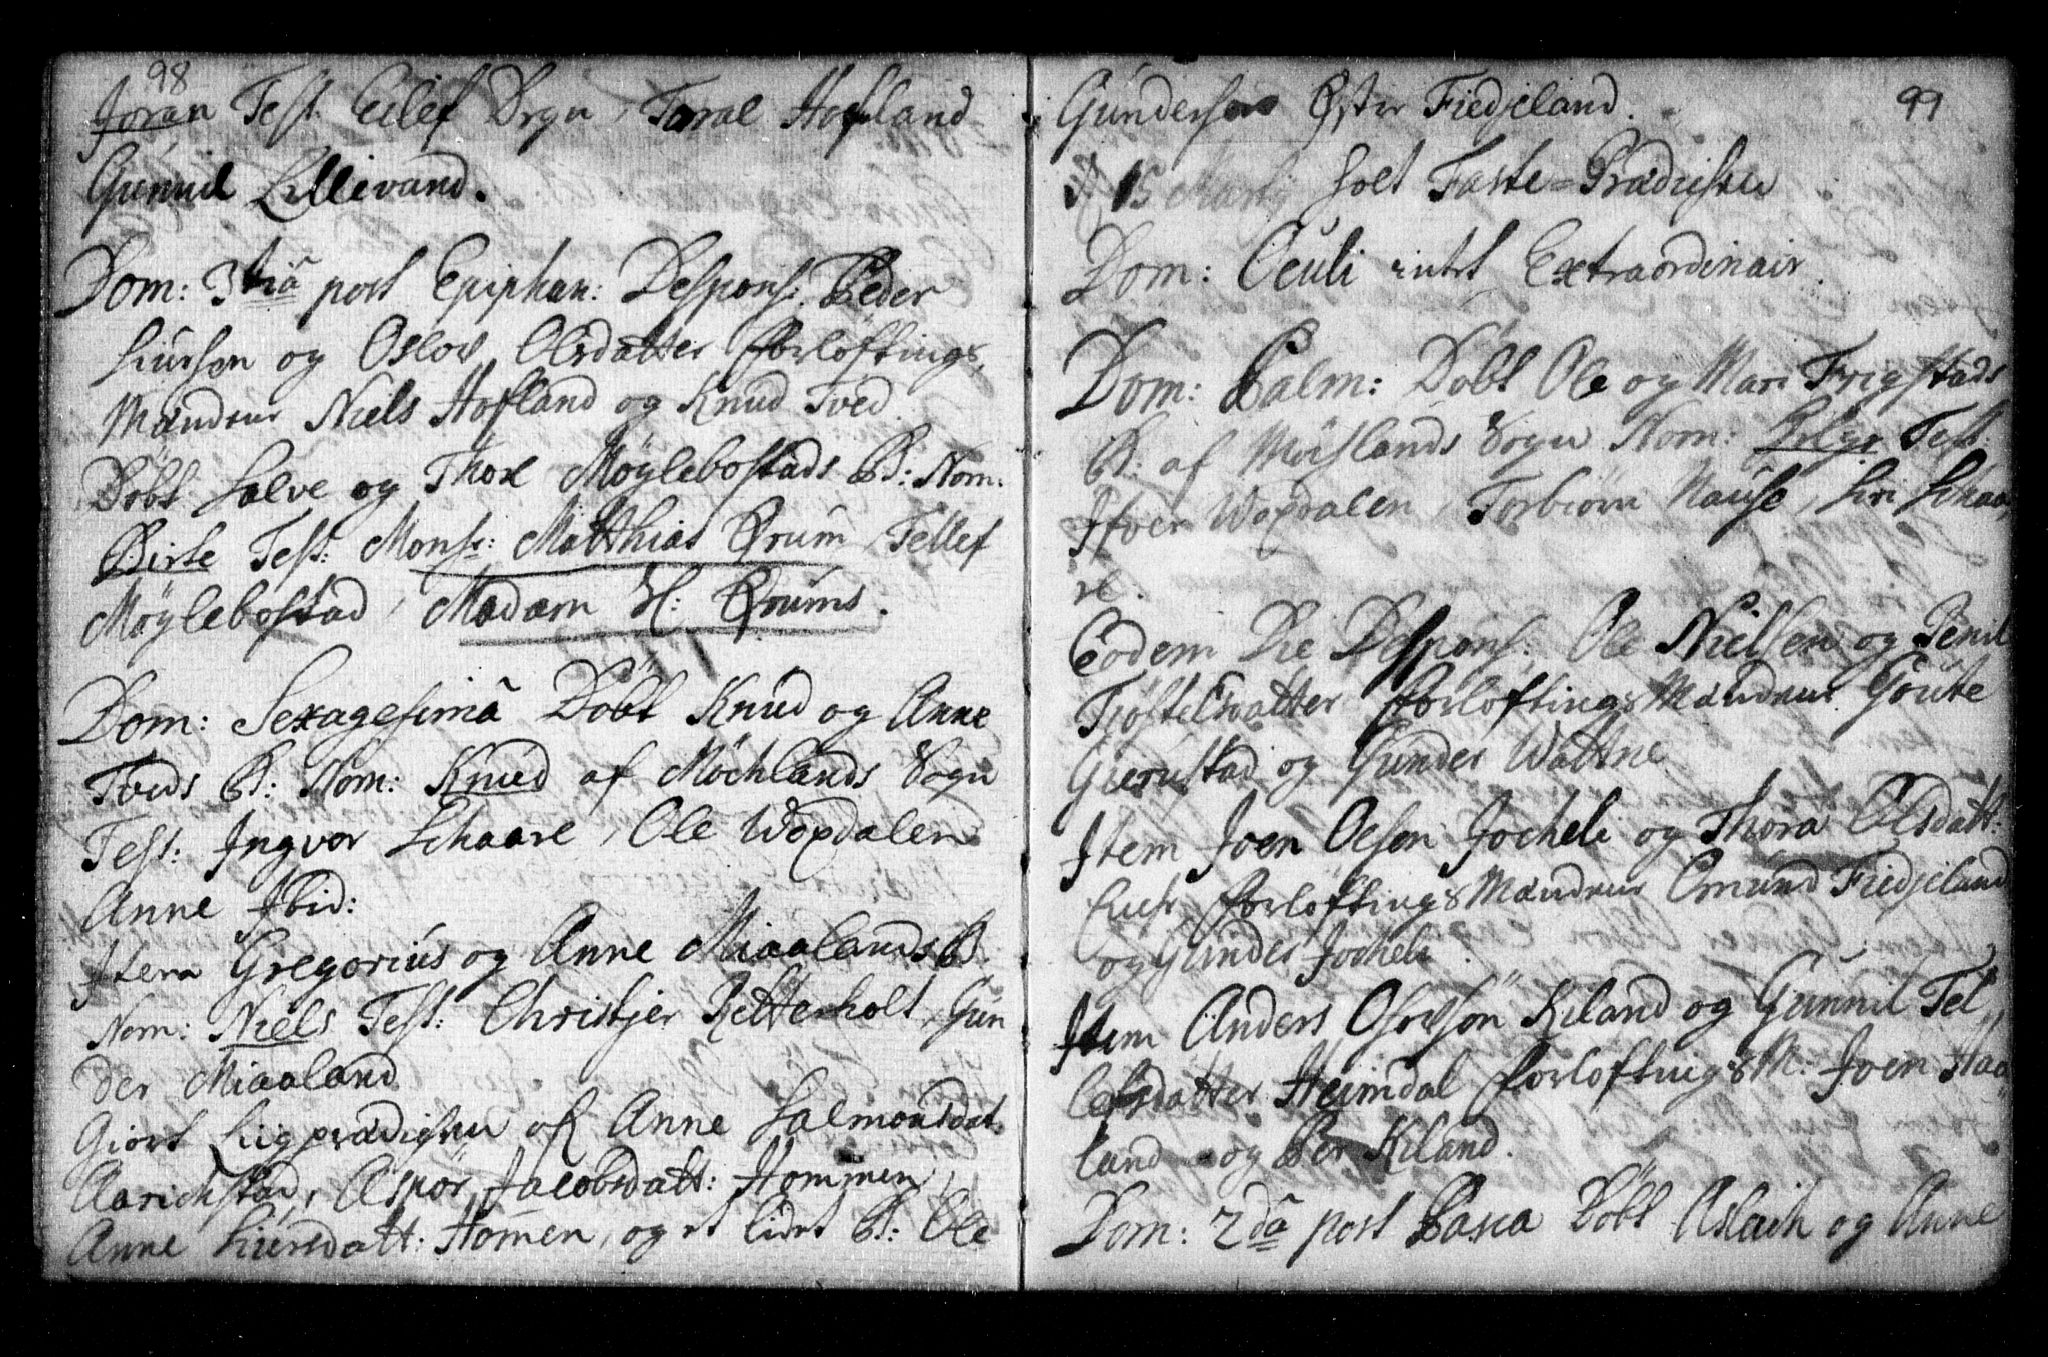 98
Joran Test. Eilef Drgn, Taral Hofland
Gunnil Lillevand.
Dom: 3tiâ post Epiphan: Despons: Peder
Siursen og Oslov Olsdatter Forløftings
Mændene Niels Hofland og Knud Tved.
Døbt Salve og Thore Møglebostads B: Nom:
Birte Test: Monsr: Matthias Ørum, Tellef
Møglebostad, Madam Sl: Ørums.
Dom: Sexagesimâ Døbt Knud og Anne
Tveds B: Nom: Knud af Mochlands Sogn
Test: Ingvor Schaare, Ole Woxdalen
Anne Ibid:
Item Gregorius og Anne Miaalands B.
Nom: Niels Test: Christjer Retterholt, Gun
der Miaaland
Giort Liigprædichen of Anne Salmonsdat.
Aarichstad, Aspor Jacobsdatt: Hommen,
Anne Siursdatt: Homen, og et lidet B: Ole
99
Gundersen Øster Fiedjeland.
d 15 Martij holt Faste=Prædichen
Dom: Oculi intet Extraordinair.
Dom: Palm: Døbt Ole og Mari Frigstads
B: af Muslands Sogn Nom: Test:
Ifver Woxdalen, Torbiørn Nause, Siri Schaar
Eodem Die Despons: Ole Nielsen og Penil
Tiøstelsdatter Forløftings Mændene Goute
Gierustad og Gunder Wattne
Item Joen Oelsen Jocheli og Thora Olsdatt:
Forløftings Mændene Omund Fiedjeland
og Gunder Jocheli
Item Anders Osufsøn Kiland og Gunnil Tel
lefsdatter Heimdal Forløftings M: Joen Haa
land og Per Kiland.
Dom: 2dâ post Pasca Døbt Aslach og Anne